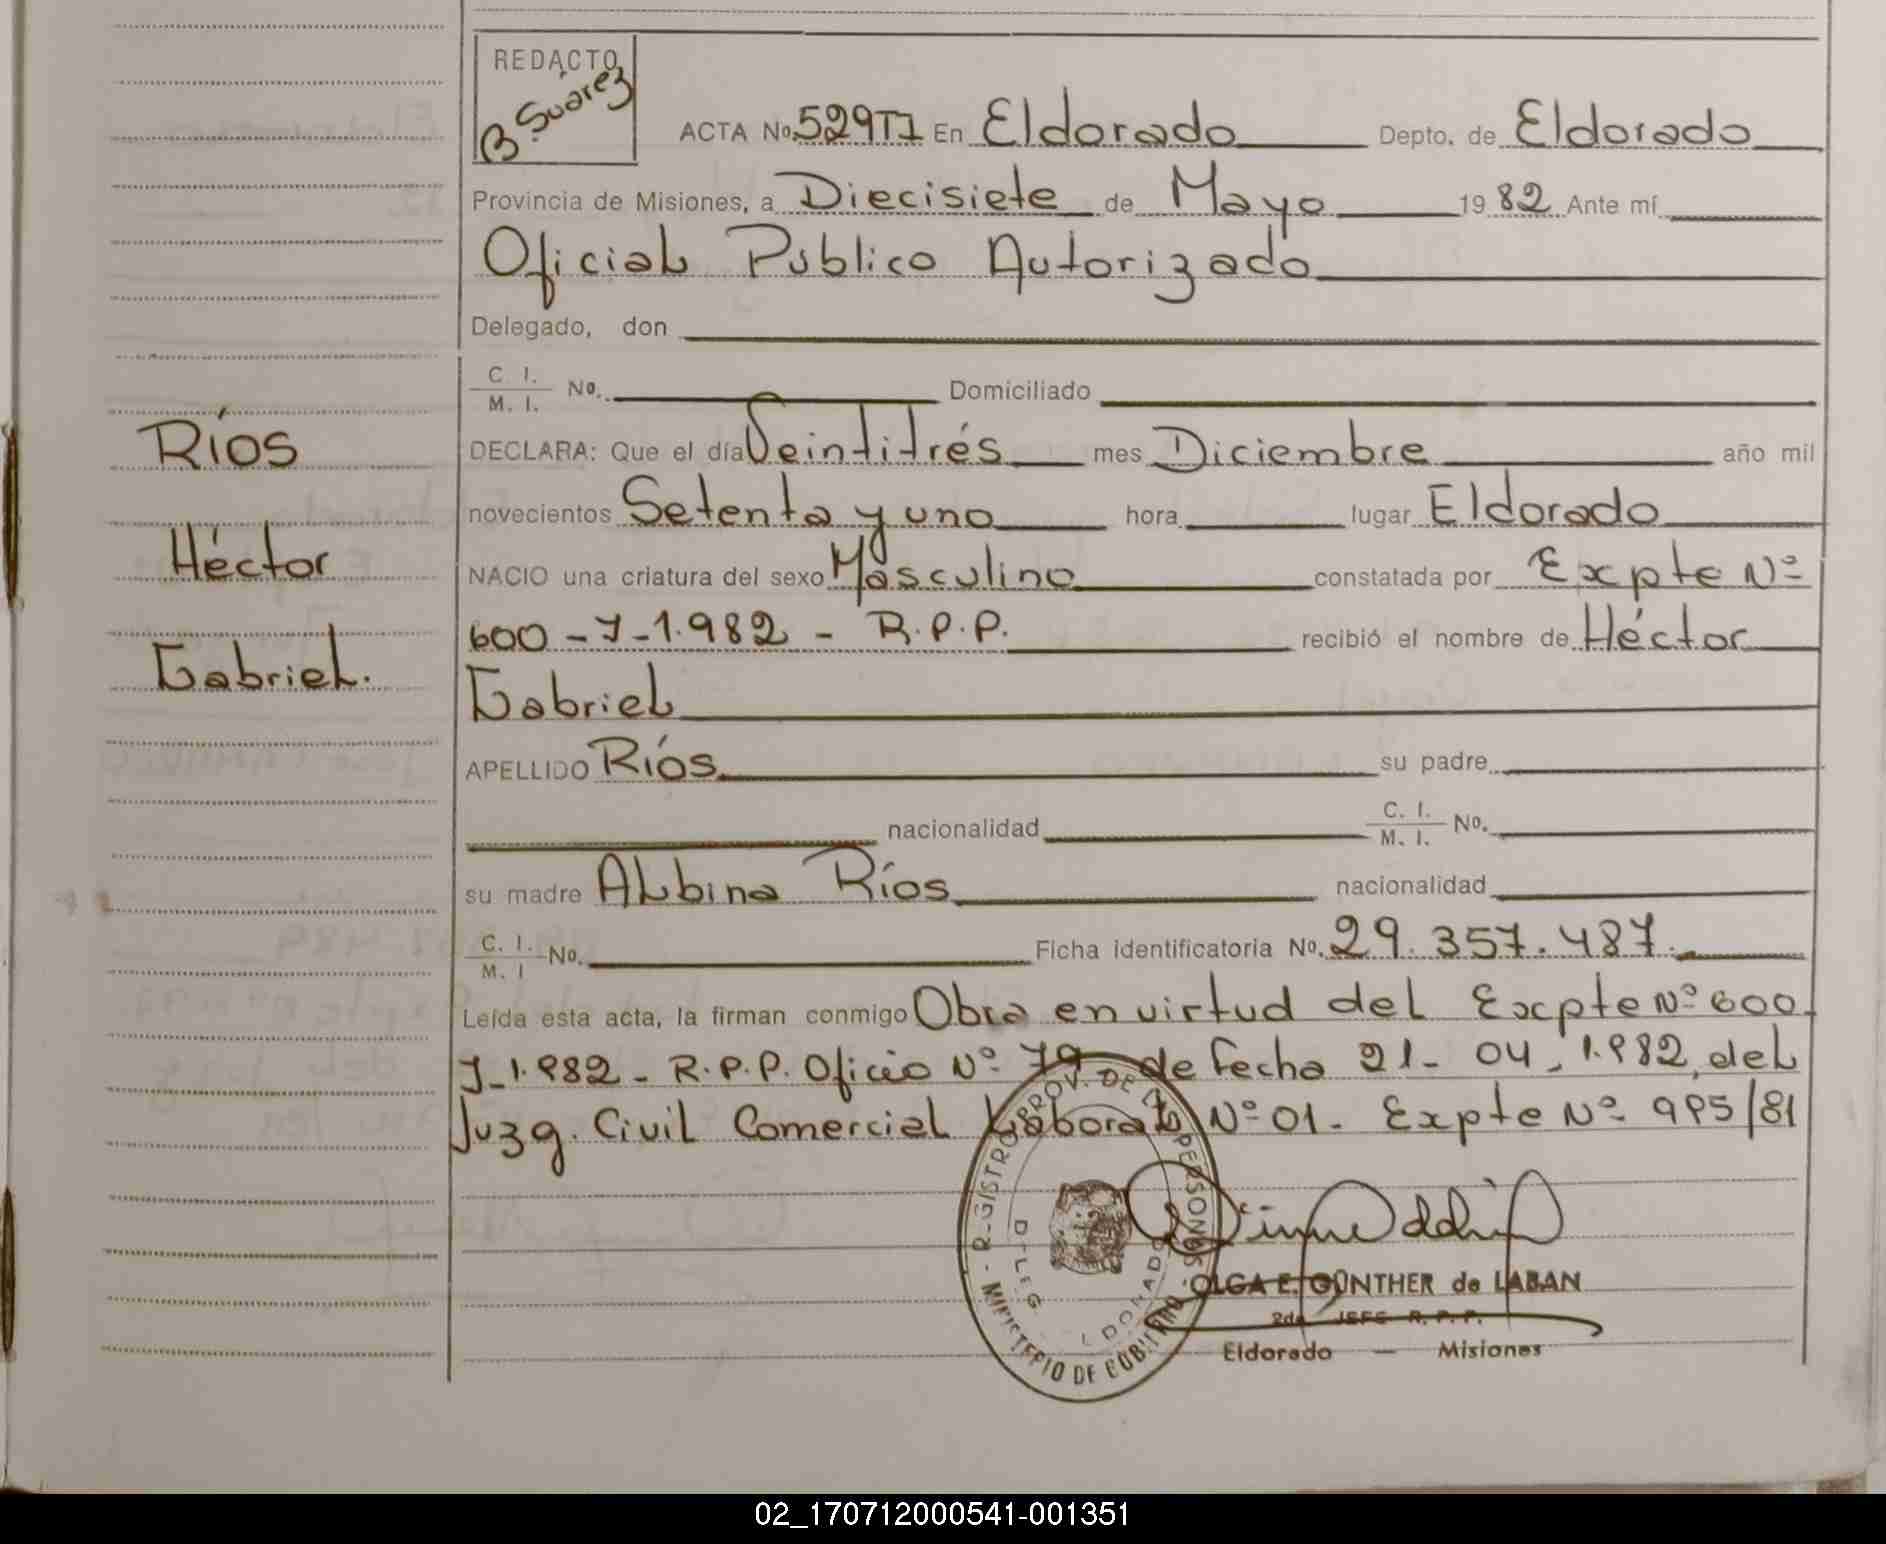 REDACTO
B. Suárez
ACTA No. 529T1 En Eldorado Depto. de Eldorado
Provincia de Misiones, a Diecisiete de Mayo 1982 Ante mí
Oficial Público Autorizado
Delegado, don
C. I.
M. I. No. Domiciliado
DECLARA: Que el día Veintitrés mes Diciembre año mil
novecientos Setenta y uno hora lugar Eldorado
NACIO una criatura del sexo Masculino constatada por Expte Nº
600-J-1.982 - R.P.P. recibió el nombre de Héctor
Gabriel
APELLIDO Ríos su padre
nacionalidad C. I. M. I. No.
su madre Albina Ríos nacionalidad
C. I. M. I No. Ficha identificatoria No. 29.357.487.
Leída esta acta, la firman conmigo Obra en virtud del Expte Nº 600
J-1.982 - R.P.P. Oficio Nº 79 de fecha 21-04-1.982, del
Juzg. Civil Comercial Laboral Nº 01 - Expte Nº 995/81
Ríos
Héctor
Gabriel.
REGISTRO PROV. DE LAS PERSONAS - MINISTERIO DE GOBIERNO
OLGA E. GÜNTHER de LABAN
2da. JEFE R. P. P.
Eldorado — Misiones
02_170712000541-001351